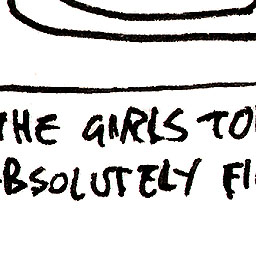 THE GIRLS TO
BSOLUTELY FI